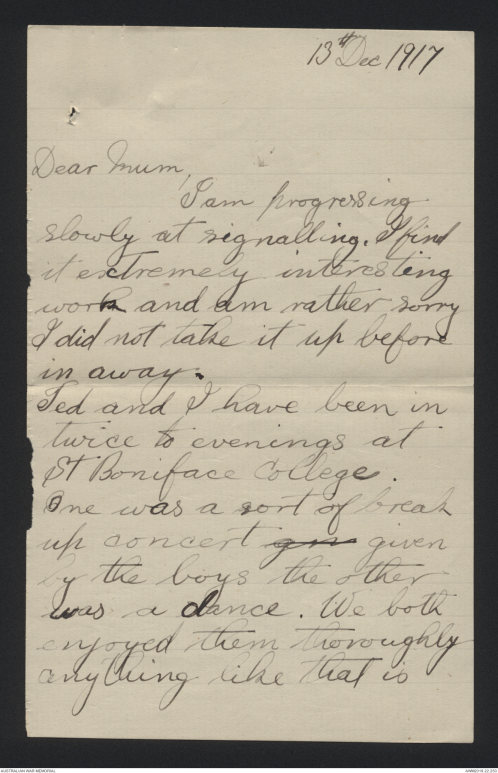 13th Dec 1917
Dear Mum,
I am progressing
slowly at signalling. I find
it extremely interesting
work and am rather sorry
I did not take it up before
in away.
Ted and I have been in
twice to evenings at
St Boniface College.
One was a sort of break
up concert gn given
by the boys the other
was a dance. We both
enjoyed them thoroughly
anything like that is
AUSTRALIAN WAR MEMORIAL